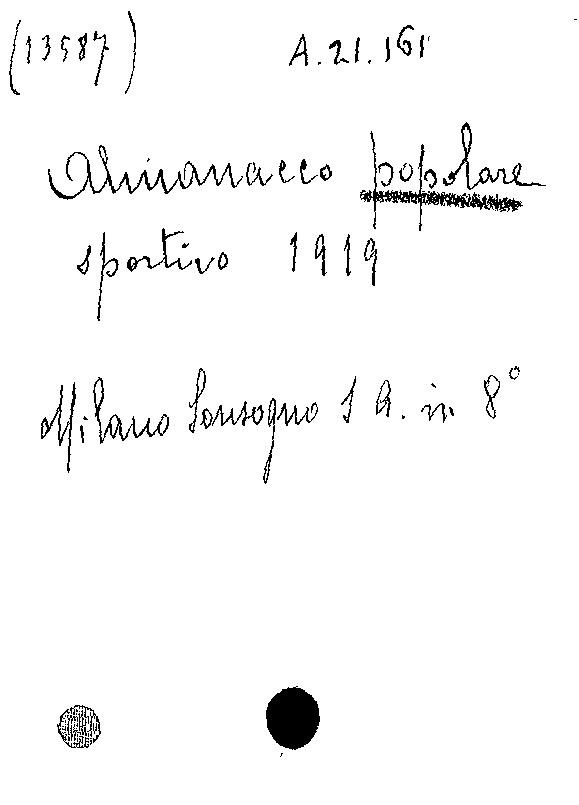 (13587) A.21.161
Almanacco popolare
sportivo 1919
Milano Sonzogno S A. in 8°